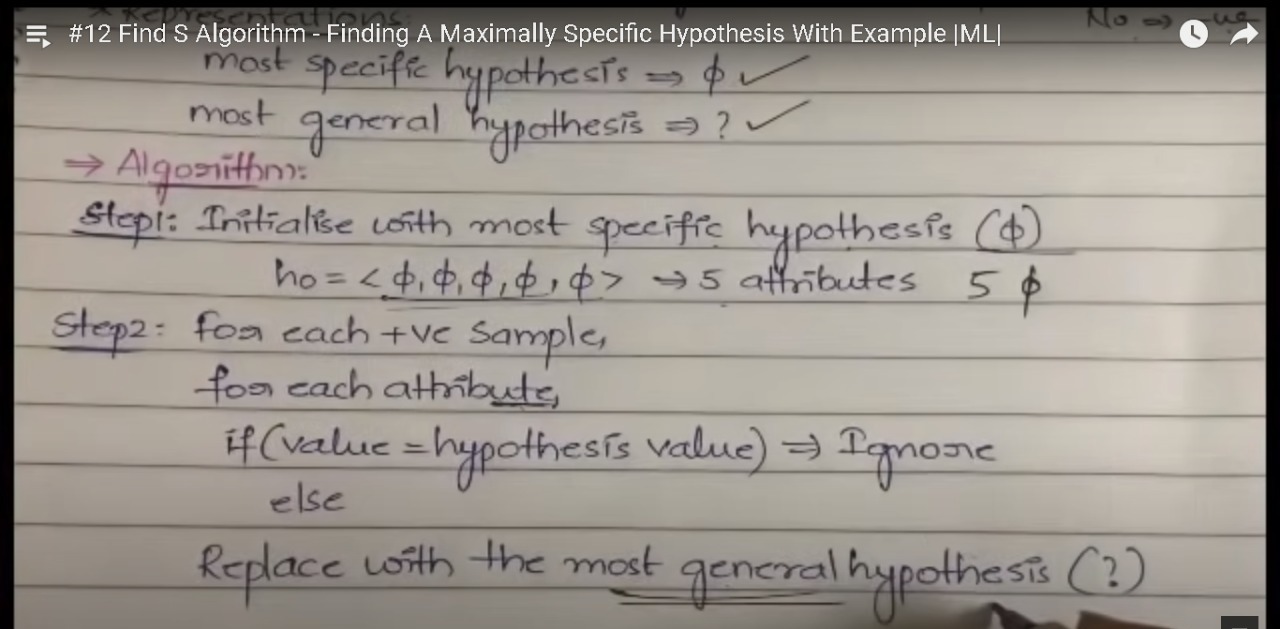 * Representations:
No ⇒ -ve
#12 Find S Algorithm - Finding A Maximally Specific Hypothesis With Example |ML|
most specific hypothesis ⇒ ϕ ✓
most general hypothesis ⇒ ? ✓
⇒ Algorithm:
Step1: Initialise with most specific hypothesis (ϕ)
h0 = < ϕ, ϕ, ϕ, ϕ, ϕ > → 5 attributes 5 ϕ
Step2: for each +ve sample,
for each attribute,
if (value = hypothesis value) ⇒ Ignore
else
Replace with the most general hypothesis (?)